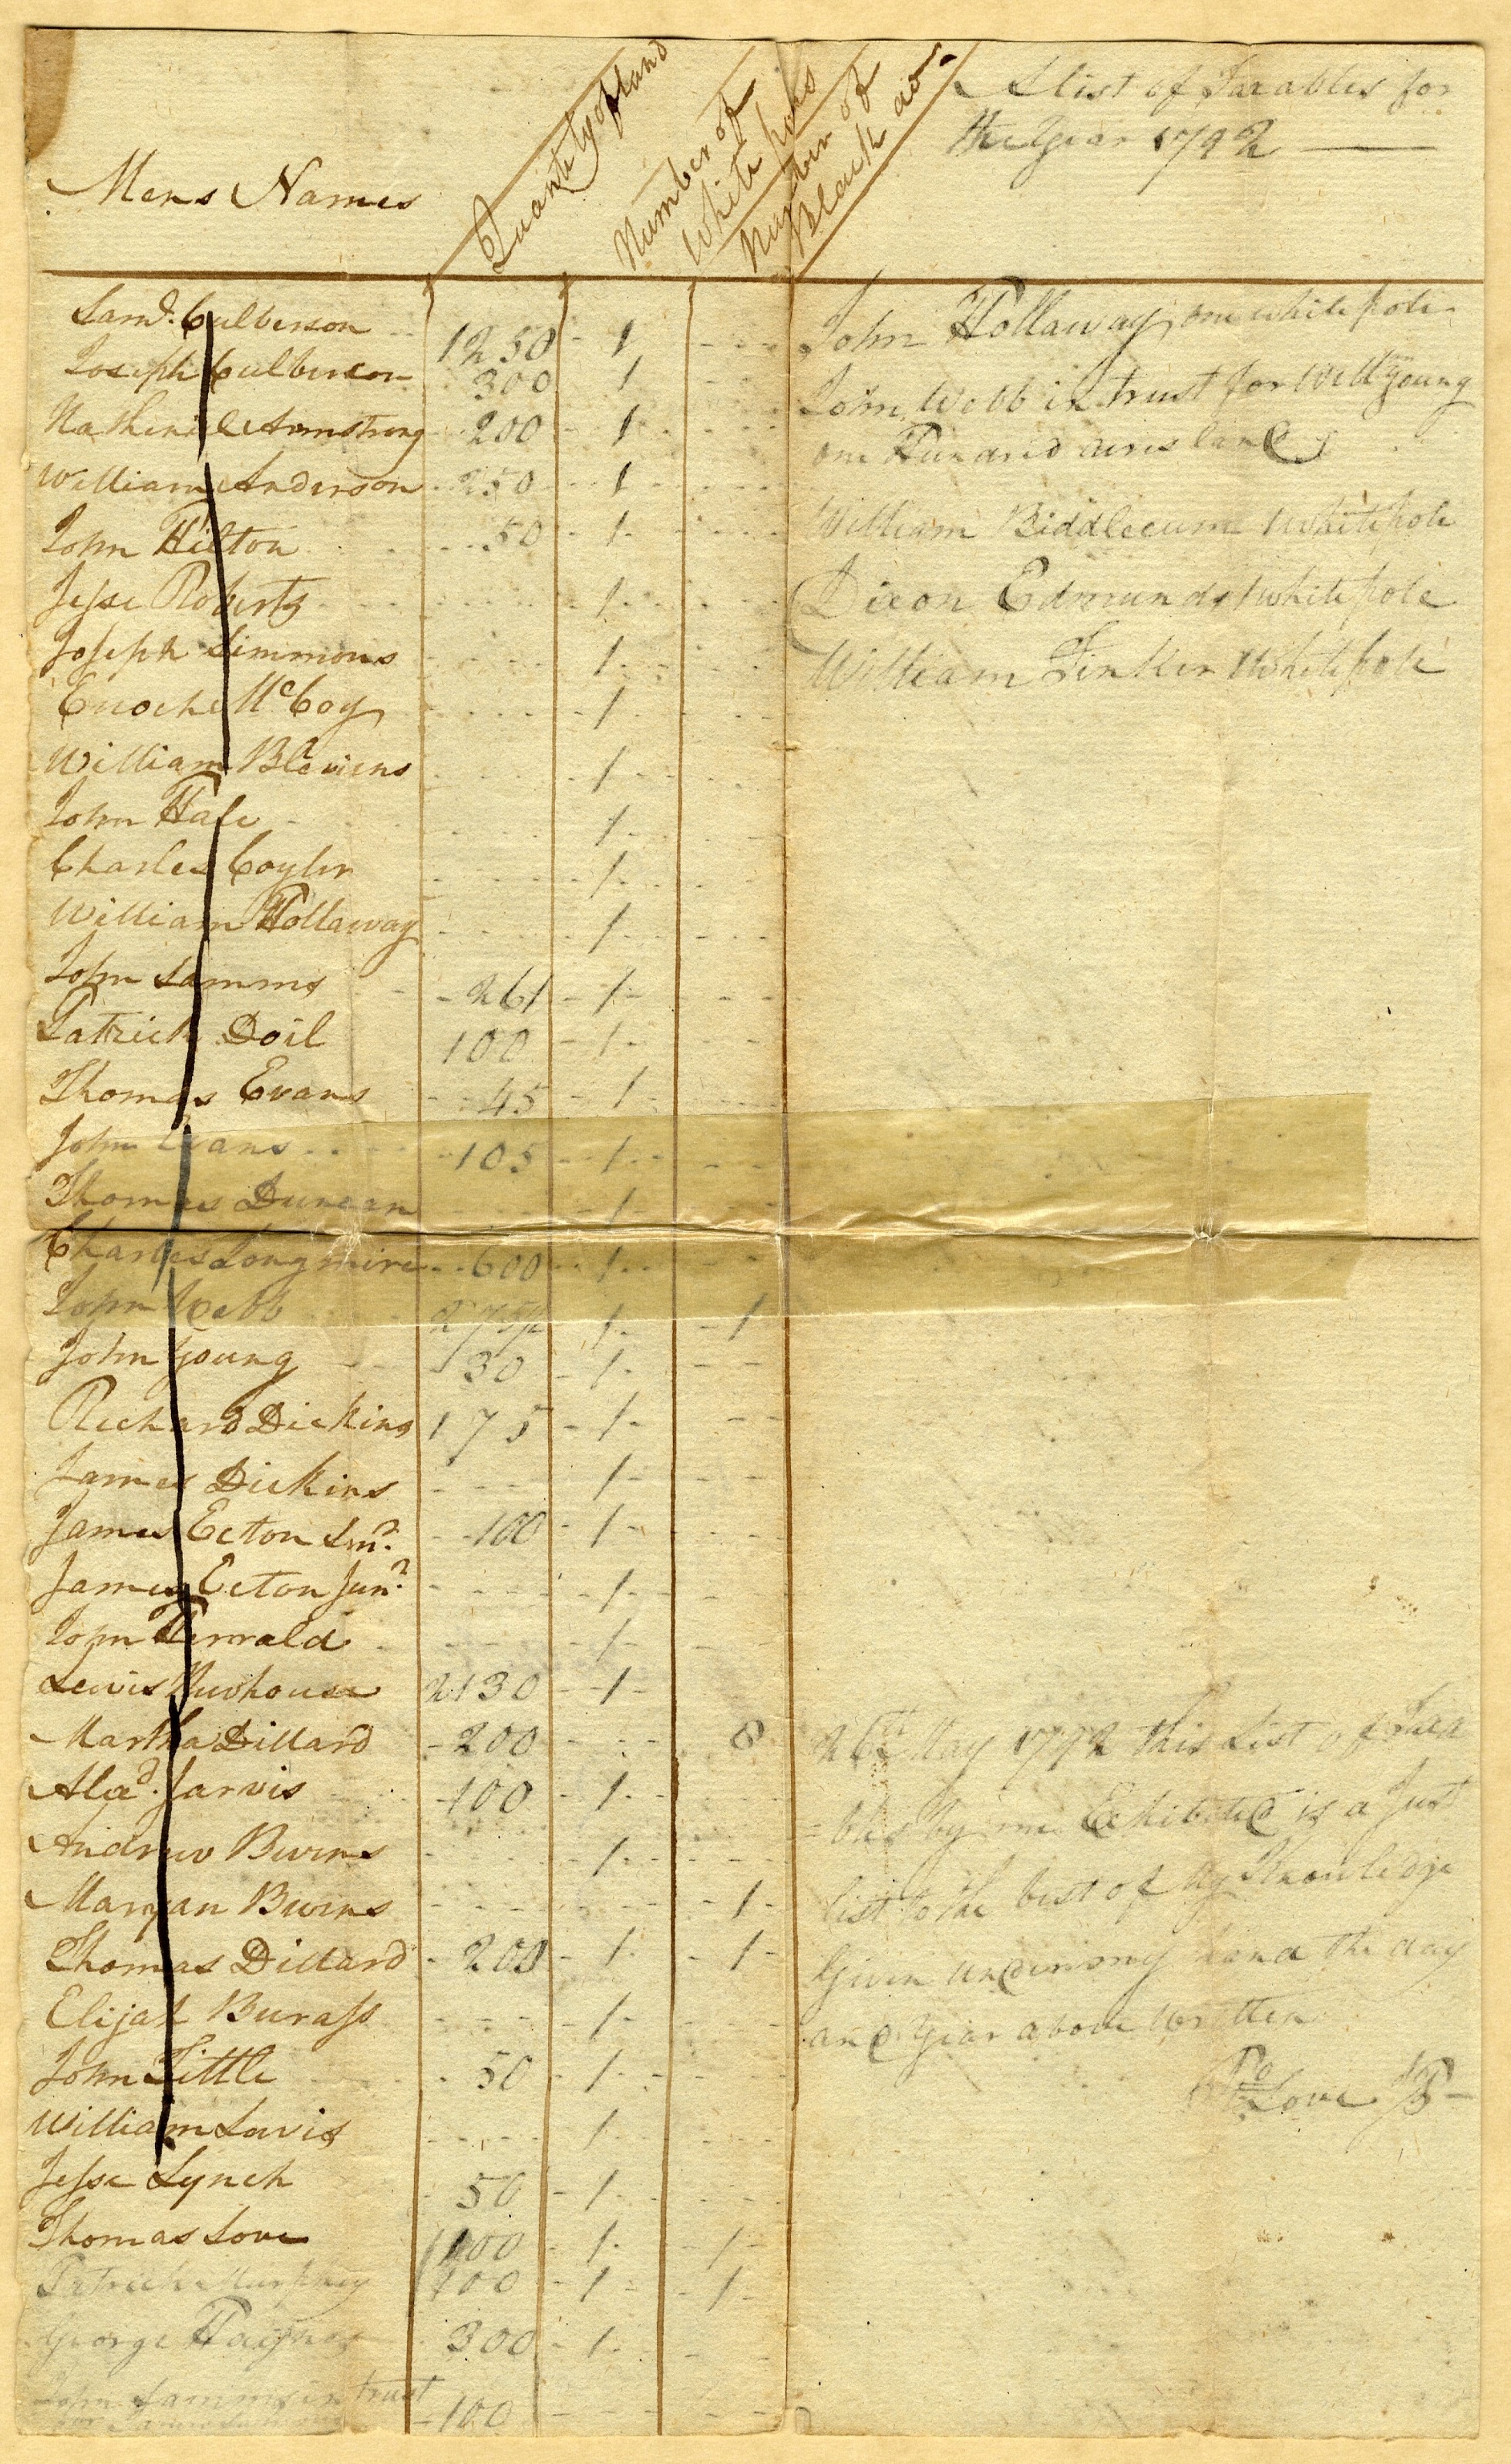 A list of Taxables for
the Year 1792
Mens Names
Quantity of land
Number of
White poles
Number of
Black do
Samd. Culberson 1250 1
Joseph Culberson 300 1
Nathaniel Armstrong 200 1
William Anderson 250 1
John Hilton 50 1
Jesse Roberts 1
Joseph Simmons 1
Enoch McCoy 1
William Blevens 1
John Hale 1
Charles Coyler 1
William Hollaway 1
John Samms 261 1
Patrick Doil 100 1
Thomas Evans 45 1
John Evans 105 1
Thomas Duncan 1
Charles Longmire 600 1
John Webb 1 1
John Young 30 1
Richard Dickins 175 1
James Dickins 1
James Ecton Snr. 100 1
James Ecton Junr. 1
John 1
Lewis Newhouse 2130 1
Martha Dillard 200 8
Alexd. Jarvis 100 1
Andrew Burns 1
Maryan Burns 1
Thomas Dillard 200 1 1
Elijah Burass 1
John Little 50 1
William Davis 1
Jesse Lynch 50 1
Thomas Love 1 1
Patrick Murphey 1 1
George 300 1
John Samms in trust
for 100
John Hollaway one white pole
John Webb in trust for Willm Young
one Hundred acres land
William Biddlecum 1 white pole
Dixon Edmunds 1 white pole
William Tinker 1 white pole
26th May 1792 this List of Taxa
=bles by me Exhibited is a Just
list to the best of My Knowledge
Given under my hand the day
and Year above Written
Love JP